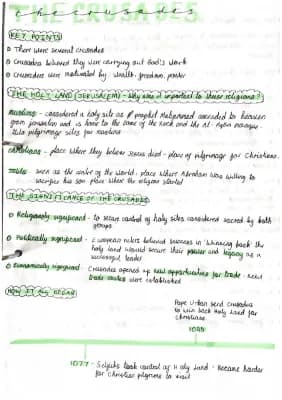 the crusades
THE CRUSADES
KEY POINTS
There were several crusades
Crusaders believed they were carrying out God's work
Crusaders were motivated by wealth, freedom, power
THE HOLY LAND (JERUSALEM) - Why was it important to these religions?
Muslims - considered a holy site as prophet Muhammad ascended to heaven
from jerusalem and is home to the dome of the Rock and the Al-Aqsa mosque.
pilgrimage site for muslims
Christians - place where they believe Jesus died - place of pilgrimage for Christians.
Jews seen as the centre of the world, place where Abraham was willing to
sacrifice his son place where the religion started
THE SIGNIFICANCE OF THE CRUSADES
Religiously significant - to secure control of holy sites considered sacred by both
groups
Politically significant - European rulers believed success in 'winning back' the
holy land would secure their power and legacy as a
successful leader
Economically significant Crusades opened up new opportunities for trade - new
trade routes were established
HOW IT ALL BEGAN
Pope Urban send crusaders
to win back Holy Land for
christians
1095
1077
- Seljuks took control of Holy Land - Became harder
for christian pilgrims to visit